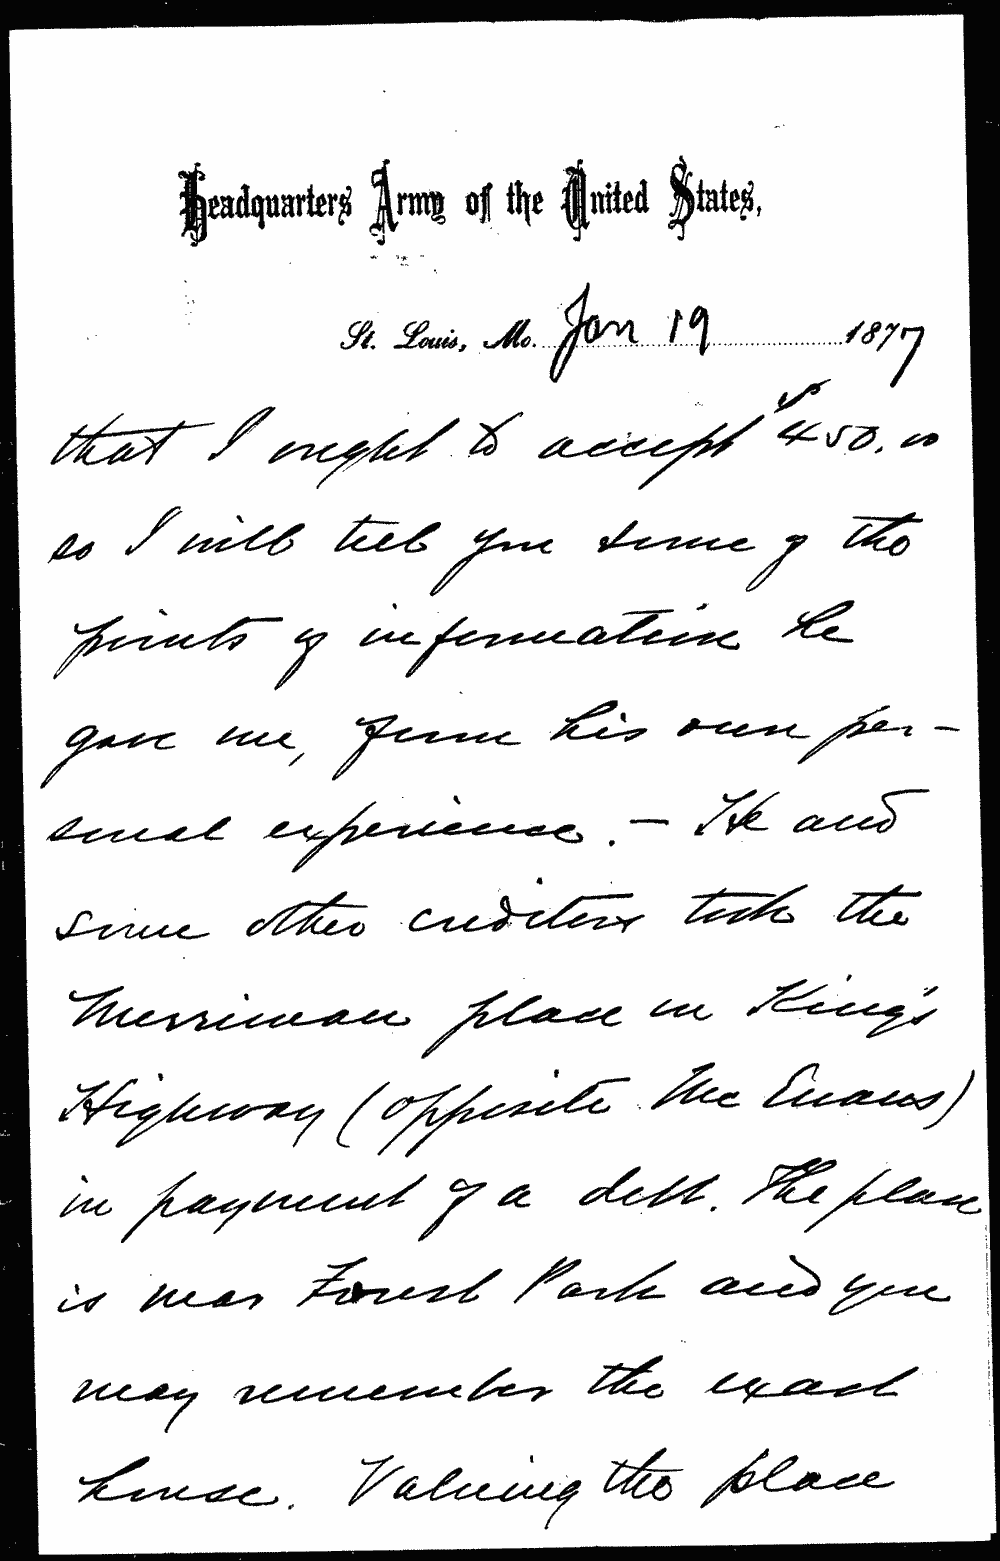 Headquarters Army of the United States,
St. Louis, Mo. Jan 19 1877
that I ought to accept $450.00
so I will tell you some of the
points of information he
gave me, from his own per-
sonal experience. – He and
some other creditors took the
Merriman place in King's
Highway (opposite Mc Evans)
in payment of a debt. The place
is near Forest Park and you
may remember the exact
house. Valuing the place